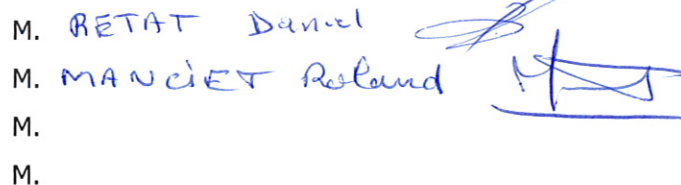 M. RETAT Daniel
M. MANCIET Roland
M.
M.